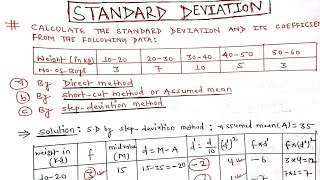 STANDARD DEVIATION
# CALCULATE THE STANDARD DEVIATION AND ITS COEFFICIENT
FROM THE FOLLOWING DATA:
Weight (in kg) 10-20 20-30 30-40 40-50 50-60
No. of Boys 3 7 10 5 3
a By Direct method
b By short-cut method or Assumed mean
c By step-deviation method
⇒ Solution: S.D by step-deviation method: → Assumed mean (A) = 35
weight-in (KG) f midvalue (M) d = M-A d' = d/10 (d')² f×d' f×d'²
10-20 3 15 15-35=-20 -2 4 -6 3×4=12